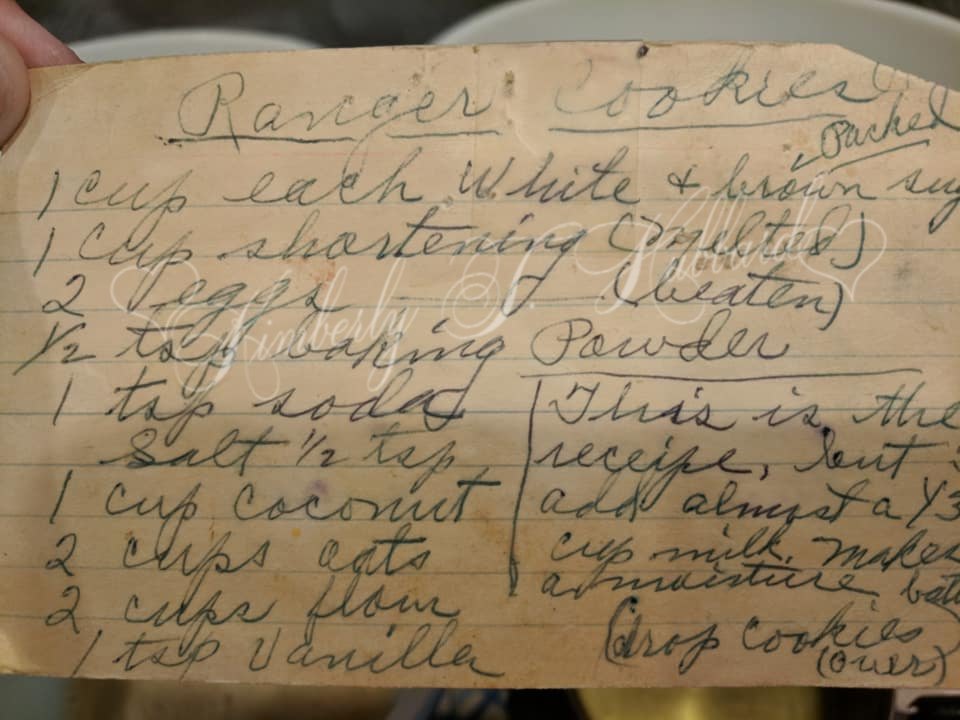 Ranger Cookies
Packed
1 cup each White & brown sug
1 Cup shortening (melted)
2 eggs (beaten)
1/2 tsp baking Powder
1 tsp soda
Salt 1/2 tsp
1 cup coconut
2 cups oats
2 cups flour
1 tsp Vanilla
This is the
receipe, but
add almost a 1/3
cup milk. Makes
a moisture
(drop cookies)
(over)
Kimberly Hibbard